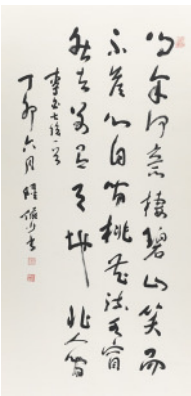 問余何意棲碧山笑而
不答心自閑桃花流水窅
然去別有天地非人間
李白七絕一首
丁卯六月 書